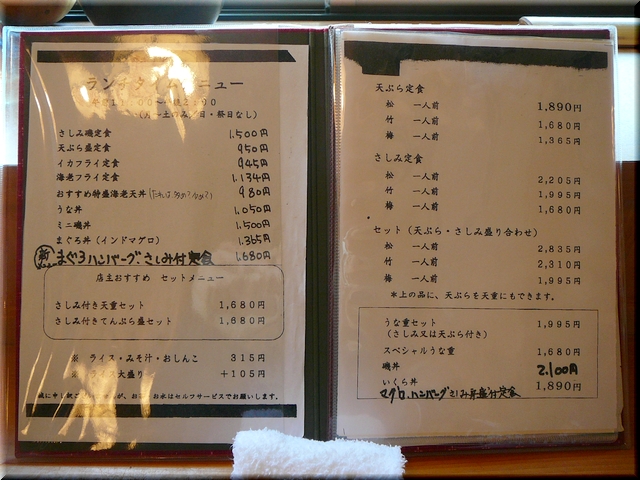 ランチタイムメニュー
(月～土のみ/日・祭日なし)
さしみ磯定食 1,500円
天ぷら盛定食 950円
イカフライ定食 945円
海老フライ定食 1.134円
おすすめ特盛海老天丼 980円
うな丼 1,050円
ミニ磯丼 1,500円
まぐろ丼(インドマグロ) 1.365円
新 まぐろハンバーグさしみ付定食 1,680円
店主おすすめ セットメニュー
さしみ付き天重セット 1,680円
さしみ付きてんぷら盛セット 1,680円
※ ライス・みそ汁・おしんこ 315円
※ 大盛り +105円
お水はセルフサービスでお願いします。
天ぷら定食
松 一人前 1,890円
竹 一人前 1,680円
梅 一人前 1,365円
さしみ定食
松 一人前 2,205円
竹 一人前 1,995円
梅 一人前 1,680円
セット(天ぷら・さしみ盛り合わせ)
松 一人前 2,835円
竹 一人前 2,310円
梅 一人前 1,995円
＊上の品に、天ぷらを天重にもできます。
うな重セット 1,995円
(さしみ又は天ぷら付き)
スペシャルうな重 1,680円
磯丼 2,100円
いくら丼 1,890円
マグロ、ハンバーグさしみ弁盛付定食